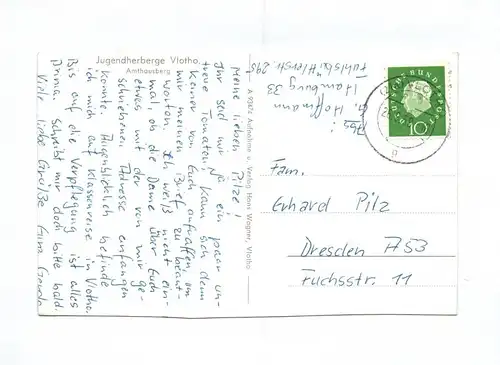 Jugendherberge Vlotho
Amthausberg
Meine lieben Pilze!
Ihr seid mir ja ein paar un-
treue Tomaten, kann sich denn
keiner von Euch aufraffen, um
mir meinen Brief zu beant-
worten. Ich weiß nicht ein-
mal, ob die Dame über Euch
etwas mit der von mir ge-
schriebenen Adresse anfangen
konnte. Augenblicklich befinde
ich mich auf Klassenreise in Vlotho.
Bis auf die Verpflegung ist alles
prima. Schreibt mir doch bitte bald.
Viele liebe Grüße Eure
A 9387 Aufnahme u. Verlag Hans Wagner, Vlotho
Abs:
G. Hoffmann
Hamburg 33
Fuhlsbüttlerstr. 295
DEUTSCHE BUNDESPOST
10
Fam.
Erhard Pilz
Dresden A53
Fuchsstr. 11